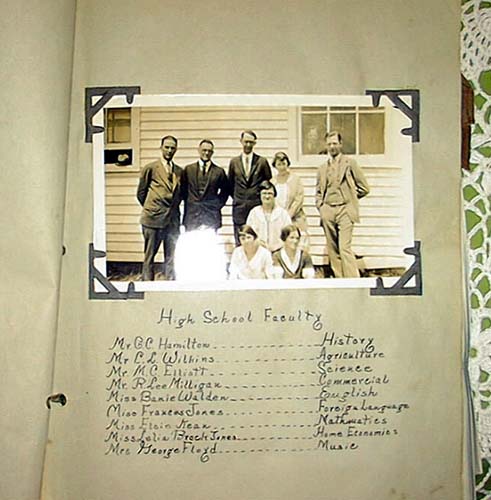 High School Faculty
Mr G.C. Hamilton History
Mr C.L. Wilkins Agriculture
Mr. M.C. Elliott Science
Mr. R Lee Milligan Commercial
Miss Banie Walden English
Miss Frances Jones Foreign Language
Miss Elsie Kean Mathematics
Miss Lelia Brock Jones Home Economics
Mrs George Floyd Music